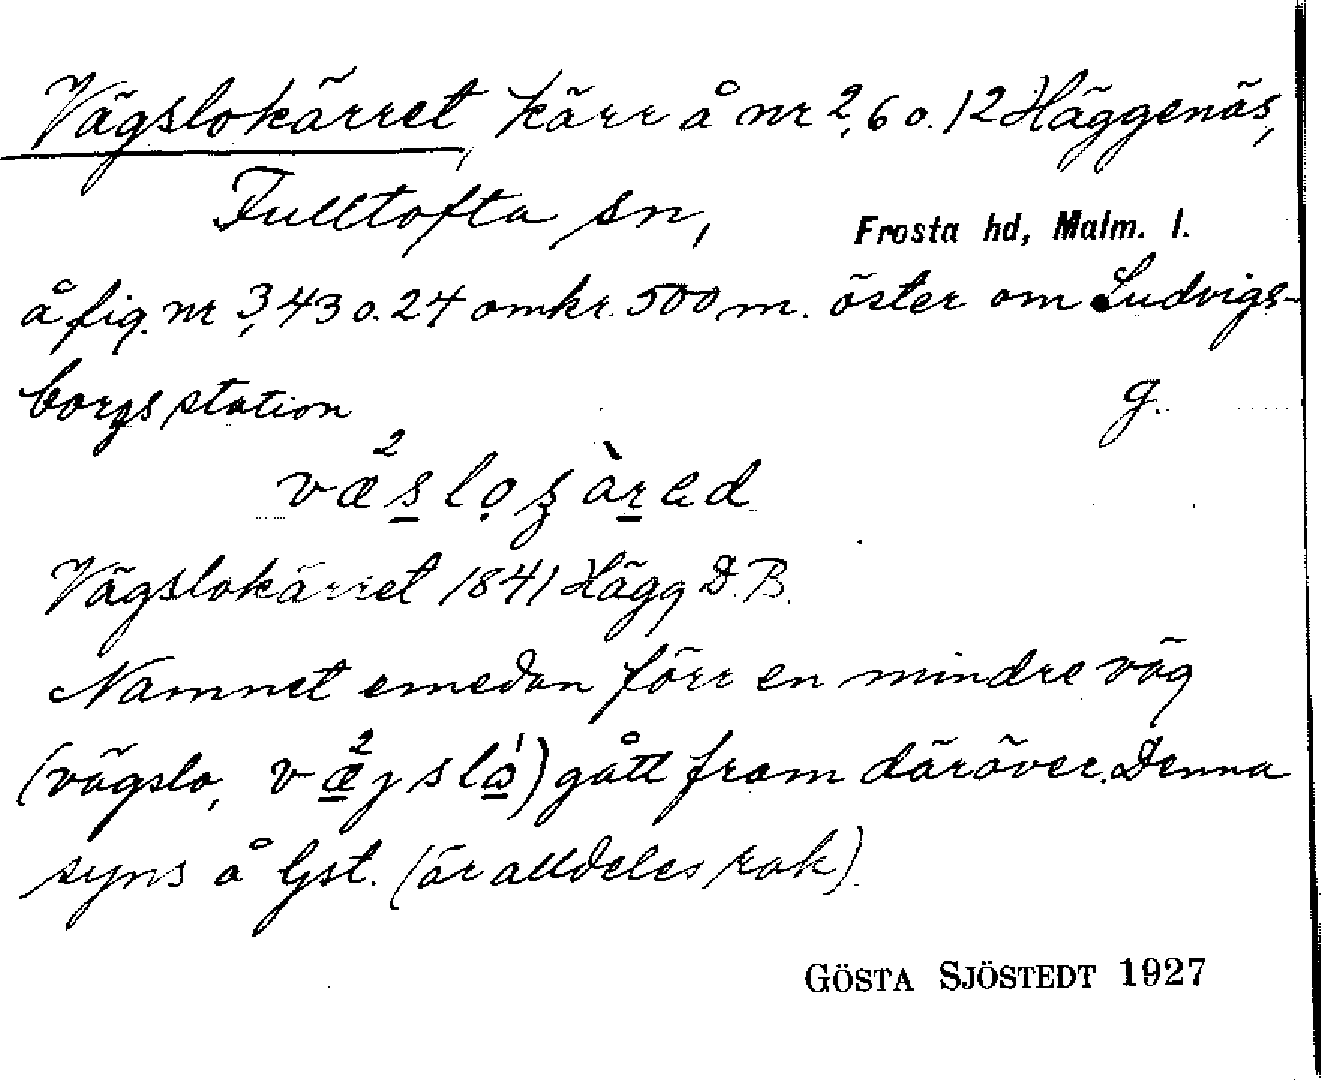 Vägslokärret, kärr å nr 2, 6 o. 12 Häggenäs,
Fulltofta sn, Frosta hd, Malm. l.
å fig. nr 3, 43 o. 24 omkr. 500 m. öster om Ludvigs-
borgs station g.
Vägslokärret 1841 Hägg D.B.
Namnet emedan förr en mindre väg
(vägslo, ) gått fram däröver. Denna
syns å Gst. (är alldeles rak).
GÖSTA SJÖSTEDT 1927